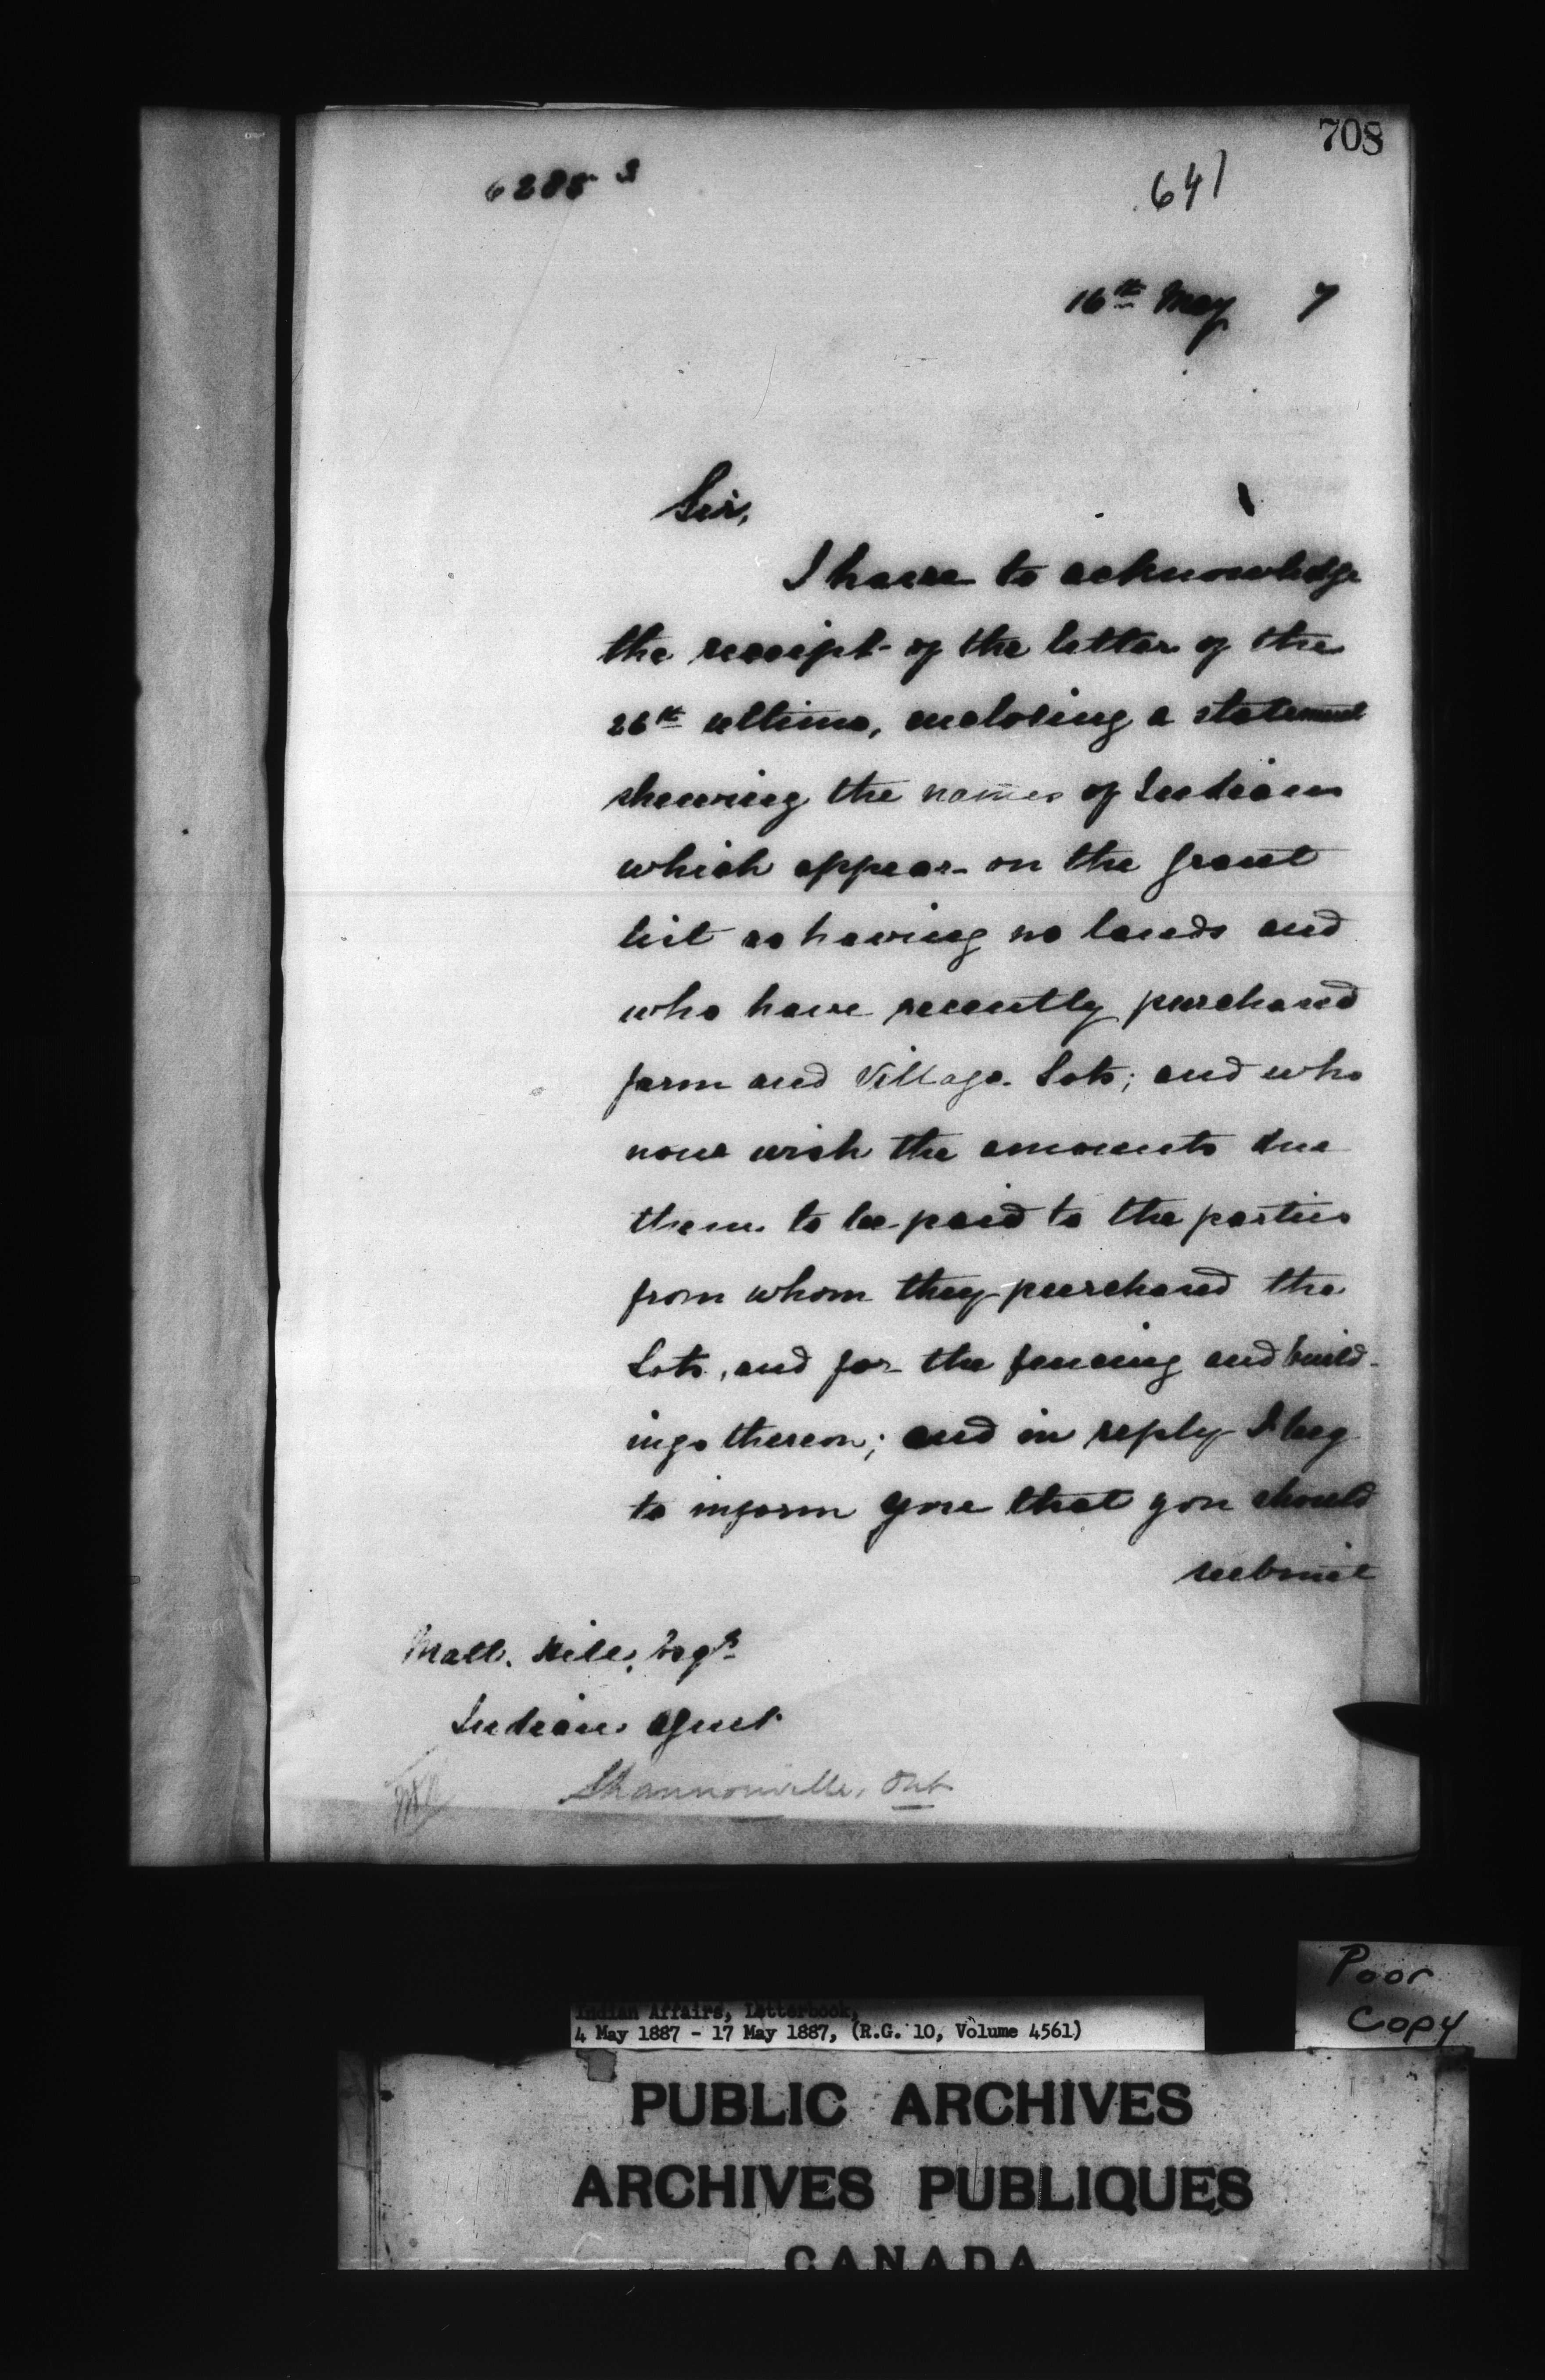 708
641
16th May 7
Sir,
I have to acknowledge
the receipt of the letter of the
26th ultimo, enclosing a statement
shewing the names of Indians
which appear on the grant
list as having no lands and
who have recently purchased
farm and Village Lots; and who
now wish the amounts due
them to be paid to the parties
from whom they purchased the
Lots, and for the fencing and build-
ings thereon; and in reply I beg
to inform you that you should
submit
Matt. Hill, Esqr
Indian Agent
Shannonville, Ont
Poor
Copy
Indian Affairs, Letterbook,
4 May 1887 - 17 May 1887, (R.G. 10, Volume 4561)
PUBLIC ARCHIVES
ARCHIVES PUBLIQUES
CANADA